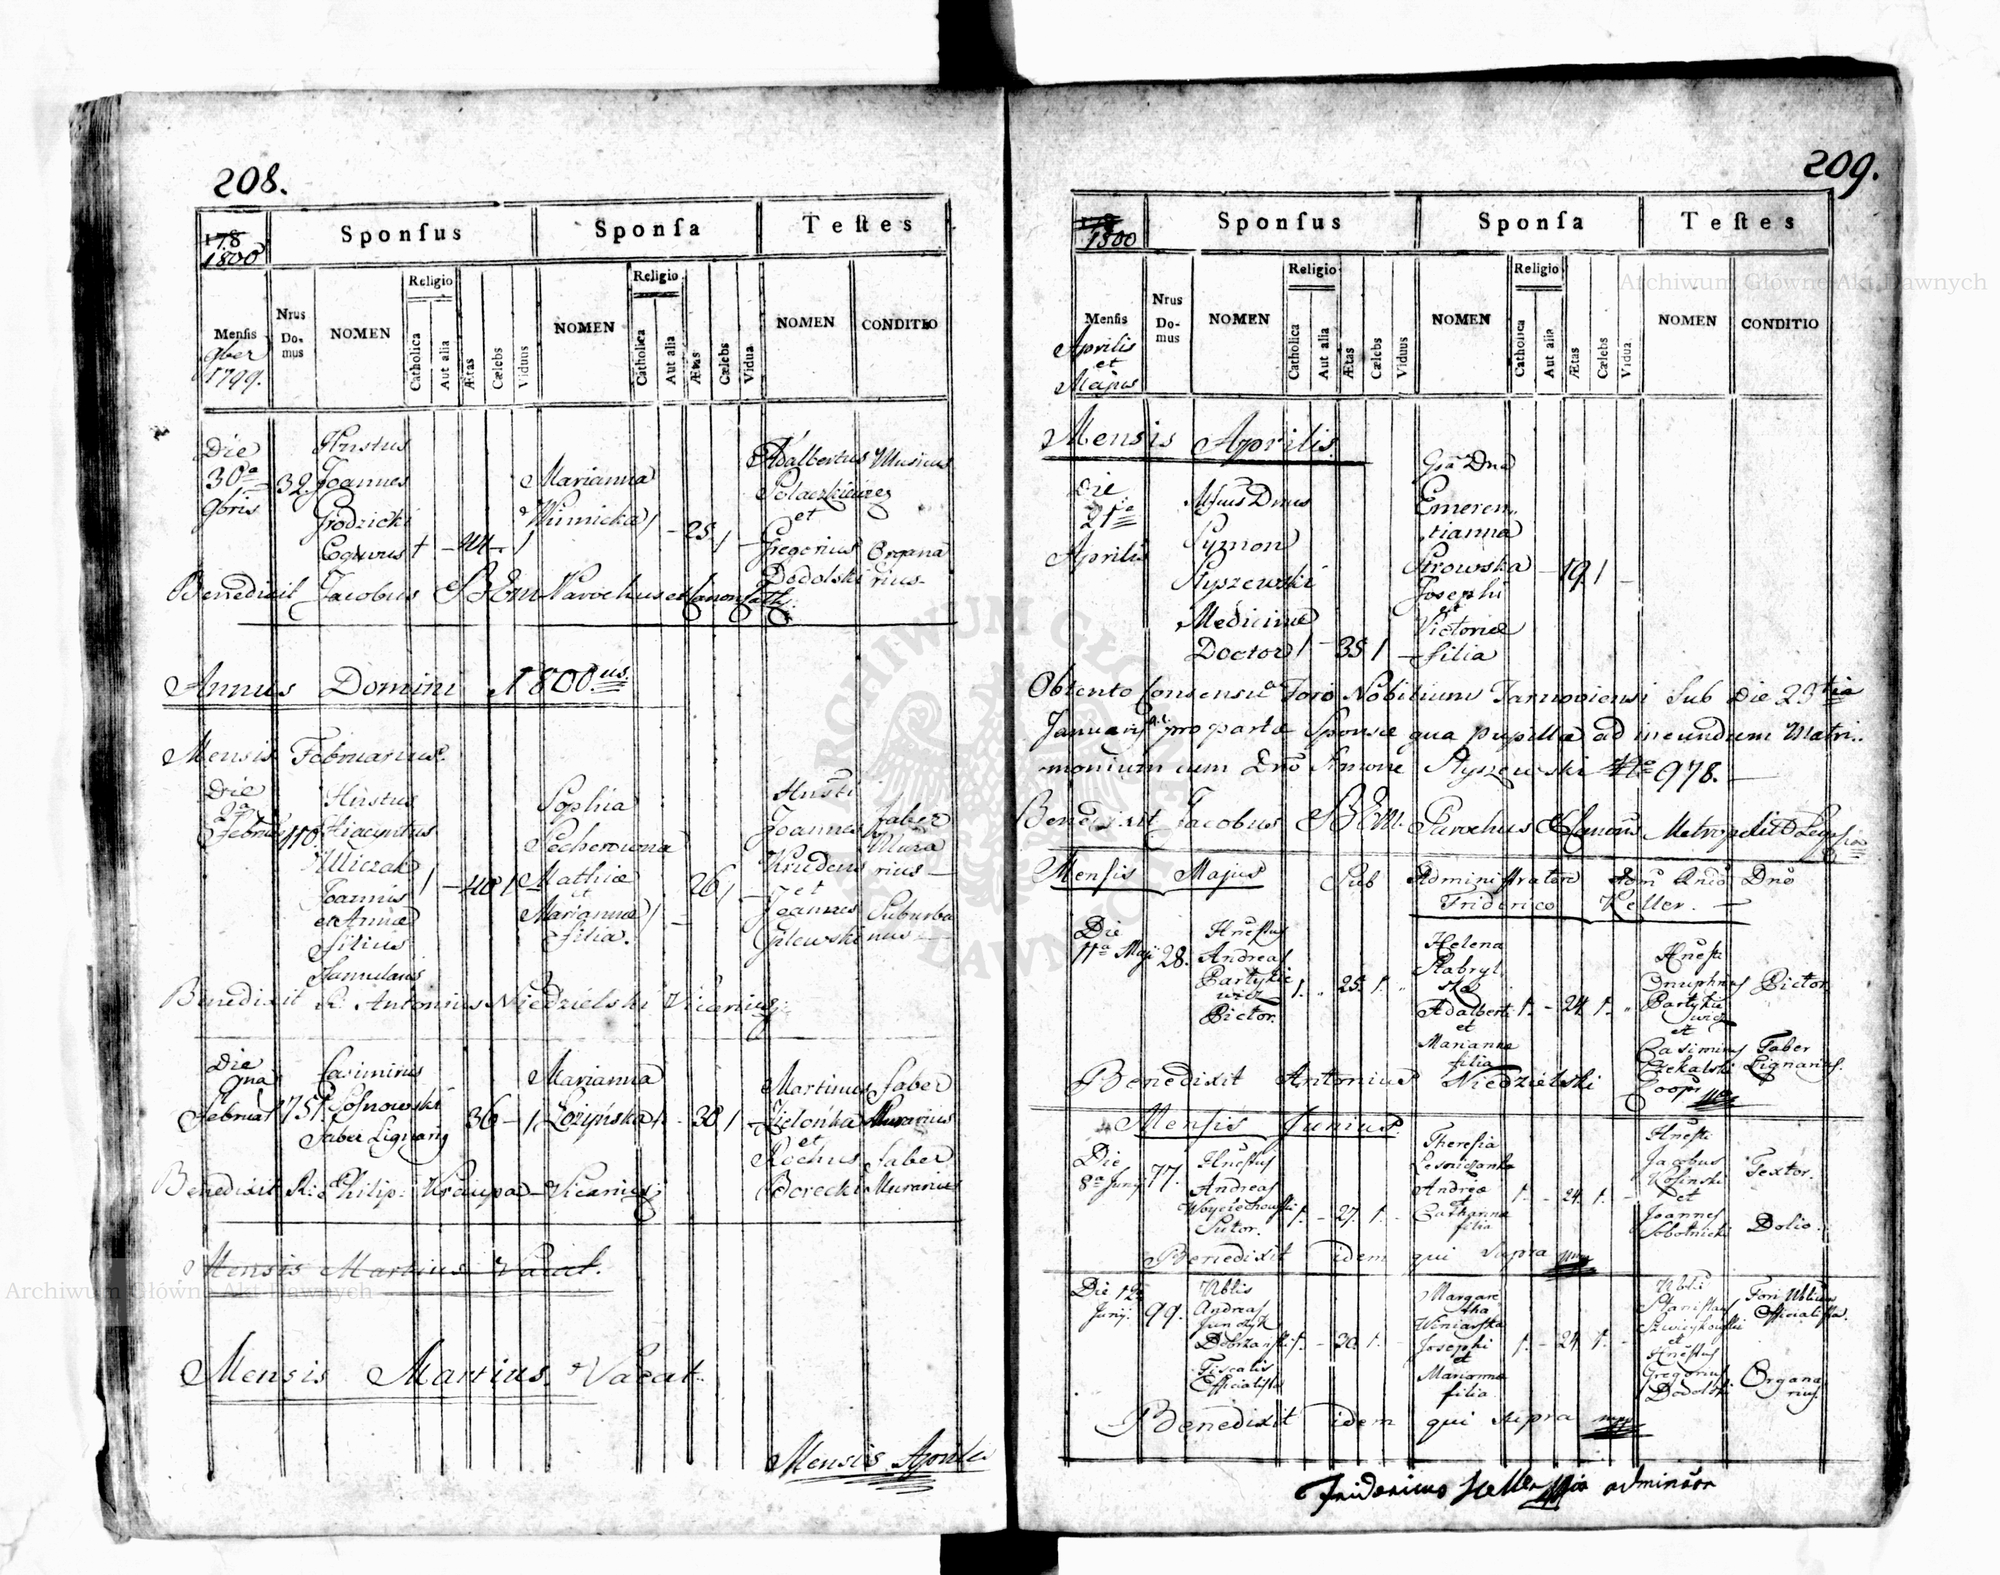 208.
178
1800
Sponſus
Sponſa
Teſtes
Menſis
9ber
1799.
Nrus
Do-
mus
NOMEN
Religio
Catholica
Aut alia
Ætas
Cælebs
Viduus
NOMEN
Religio
Catholica
Aut alia
Ætas
Cælebs
Vidua
NOMEN
CONDITIO
Die
30a
9bris
32.
Hnstus
Joannes
Grodzicki
Coquus
1 - 44 - 1
Marianna
Winnicka
1 - 25 1 -
Adalbertus Musicus
Polaczkiewicz
et
Gregorius Organa
Dodolski rius
Benedixit Jacobus BEm Parochus et Canon: Cath:
Annus Domini 1800us.
Mensis Februarius.
Die
2a
Februar
110.
Hnstus
Hiacyntus
Uliczak
Joannis
et Annæ
filius
Famulans
1 - 40 1 -
Sophia
Pecherowna
Mathiæ
et
Mariannæ
filia.
1 - 26 1 -
Hnsti
Joannes faber
Krudens Mura
rius
et
Joannes Suburba
Gilewski nus
Benedixit R. Antonius Niedzielski Vicarius
Die
9na
Februar
75
Casimirus
Sosnowski
Faber Lignariq
1 36 - 1
Marianna
Lozińska
1 - 30 1 -
Martinus faber
Zielonka Murarius
et
Rochus faber
Borecki Murarius
Benedixit R: Philip: Kraupa Vicarius
Mensis Martius Vacat.
Mensis Martius. Vacat.
Mensis Aprilis
209.
178
1800
Sponſus
Sponſa
Teſtes
Menſis
Aprilis
et
Majus
Nrus
Do-
mus
NOMEN
Religio
Catholica
Aut alia
Ætas
Cælebs
Viduus
NOMEN
Religio
Catholica
Aut alia
Ætas
Cælebs
Vidua
NOMEN
CONDITIO
Mensis Aprilis.
Die
21a
Aprilis
Mfcus Dnus
Symon
Styszewski
Medicinæ
Doctor
1 - 35 1 -
Gsa Dna
Emeren
tianna
Strowska
Josephi
et
Victoriæ
filia
- 19 1 -
Obtento Consensu a Foro Nobilium Tarnoviensi Sub Die 23tia
Januarii pro parte Sponsæ qua pupillæ ad ineundum Matri-
monium cum Dno Simone Styszewski Nro 978. -
Benedixit Jacobus BEm. Parochus Canonus Metropolit
Menſis Majus Sub Administratore Adm Rndo Dno
Friderico Keller. -
Die
11a Maji
28.
Hneſtus
Andreas
Bartykie
wicz
Pictor.
1. „ 25. 1. „
Helena
Stabryl
ska
Adalberti
et
Marianna
filia
1. - 24 1. „
Hneſti
Onuphrius Pictor
Bartykie
wicz
et
Casimirus Faber
Czekalski Lignarius.
Benedixit Antonius Niedzielski Coopr mp
Menſis Junius.
Die
8a Junij
77.
Hneſtus
Andreas
Woyciechowski
Sutor.
1. - 27. 1. -
Theresia
Leśniczanka
Andreæ
et
Catharina
filia
1. - 24 1. -
Hneſti
Jacobus
Kosinski Textor.
et
Joannes
Sobotnicki Dolio.
Benedixit idem qui supra mp
Die 12a
Junij.
99.
Nblis
Andreas
Junczyk
Dobrzański
Fiscalis
Officialista
1. - 30. 1. -
Margare
tha
Winiarska
Josephi
et
Marianna
filia
1. - 24 1. -
Nblis
Stanislaus Fori Nblium
Szwieykowski Officialista.
et
Hneſtus
Gregorius Organa
Dodolski rius.
Benedixit idem qui supra mp
Fridericus Keller mp adminstor
Archiwum Główne Akt Dawnych
Archiwum Główne Akt Dawnych
ARCHIWUM GŁÓWNE AKT DAWNYCH